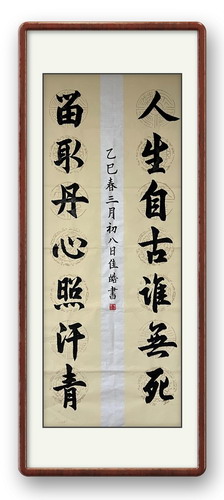 人生自古谁無死
留取丹心照汗青
乙巳春三月初八日佳皓書